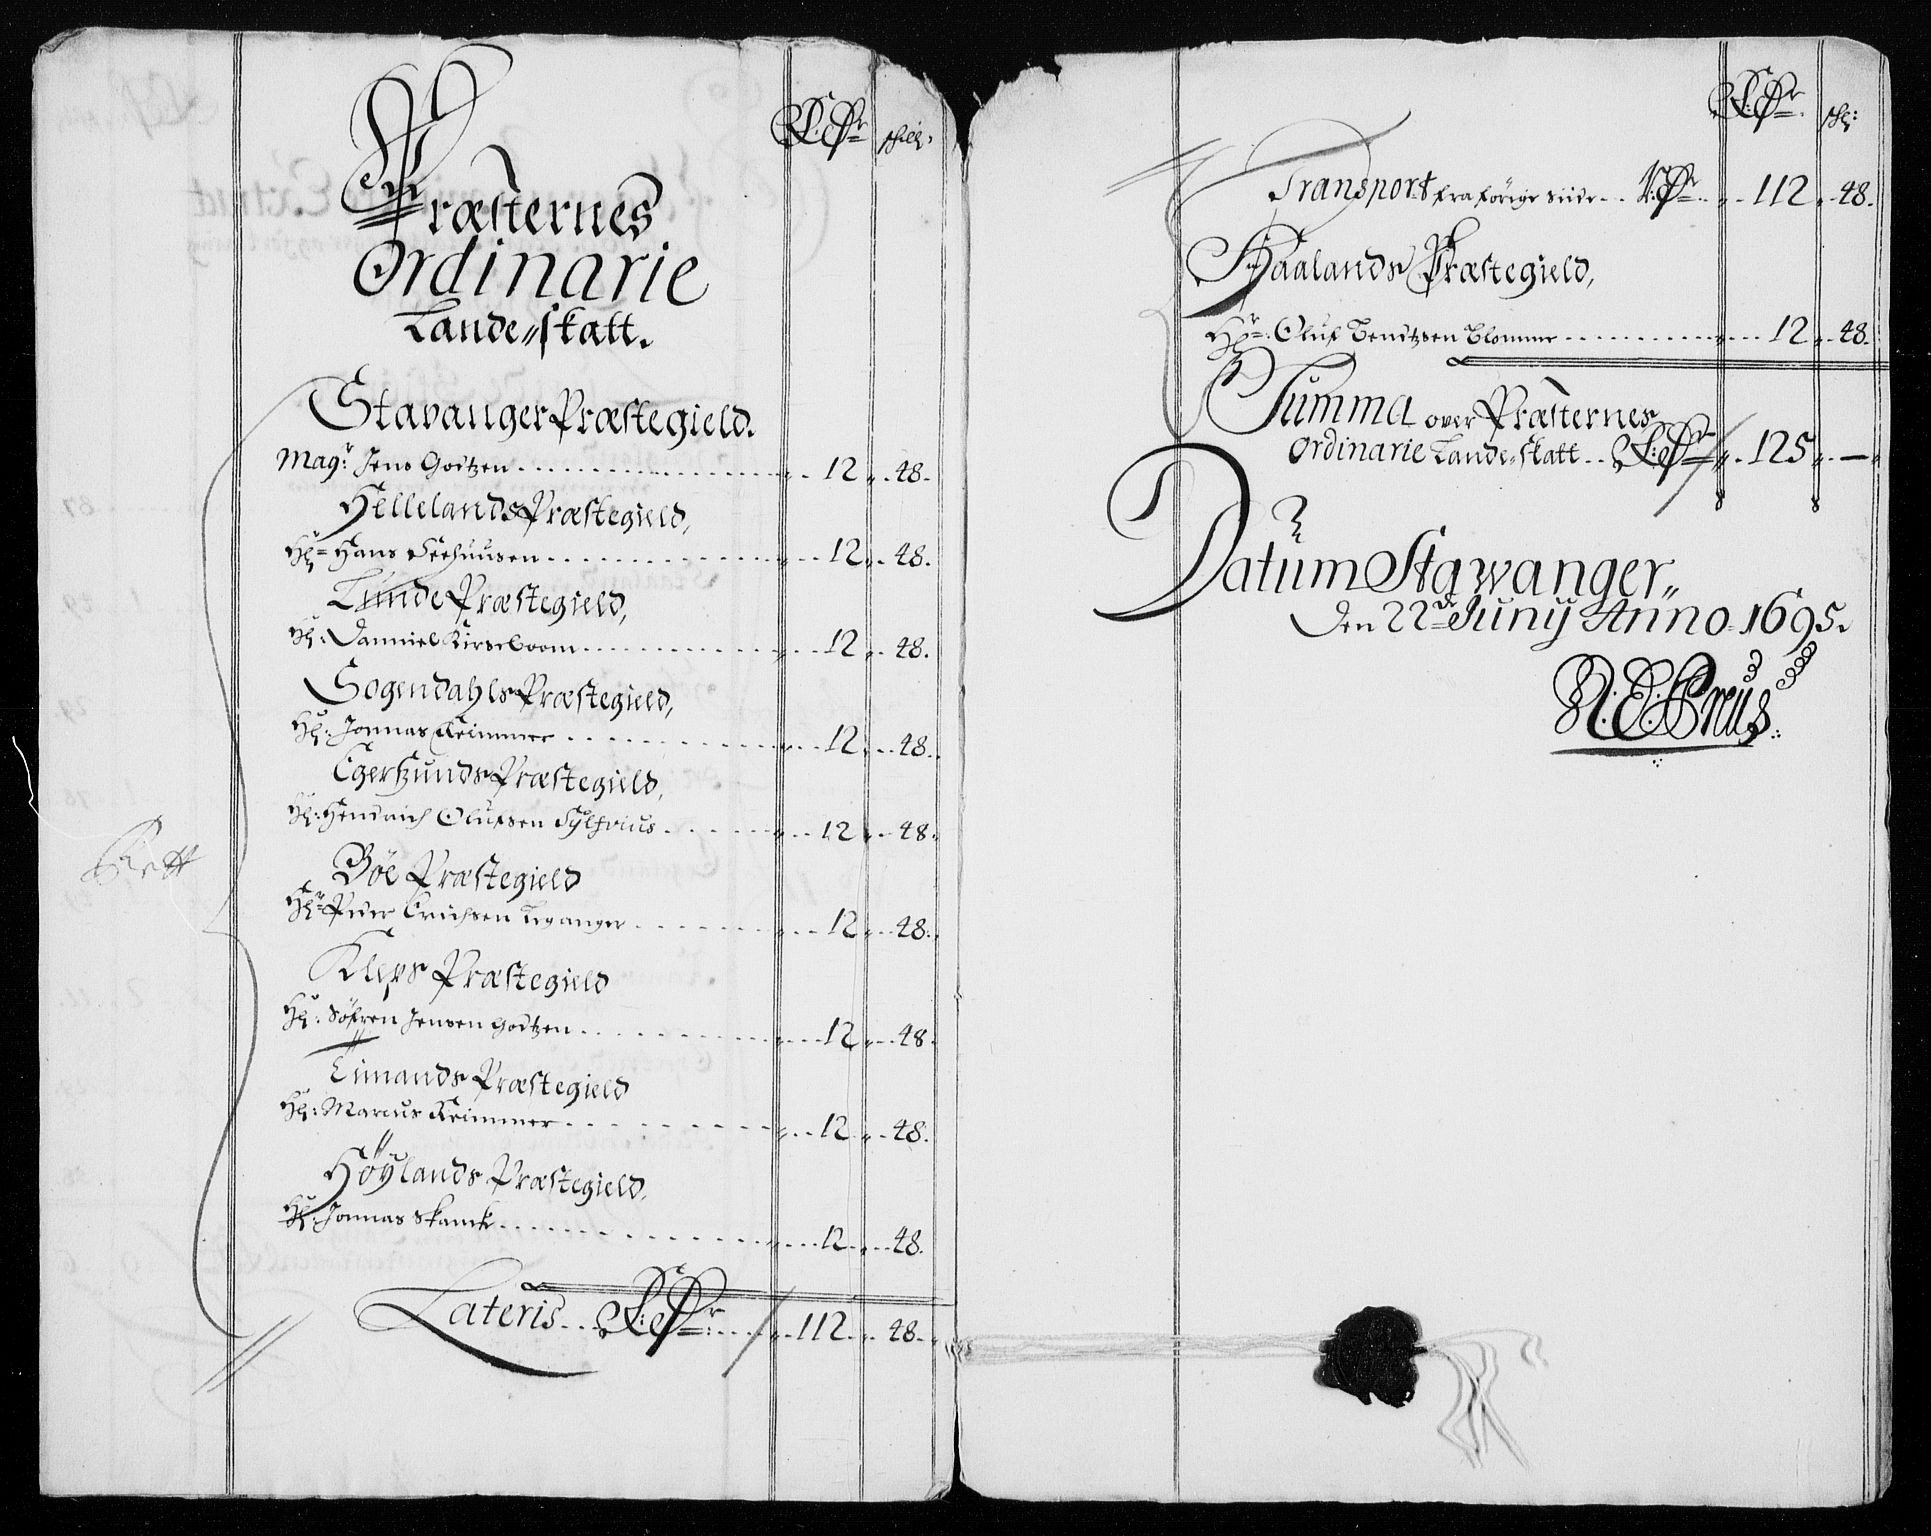 R: dr schill:
Præsternes
Ordinarie
Lande„skatt.
Stavanger Præstegield.
Magr: Jens Godtzen 12 „ 48.
Hellelands Præstegield,
Hr: Hans Seehuusen 12 „ 48.
Lunde Præstegield,
Hr: Danniel Kirseboom 12 „ 48.
Sogendahls Præstegield,
Hr: Jonnas Krimmer 12 „ 48.
Egersunds Præstegield,
Hr: Hendrich Olufsen Sylfvius 12 „ 48.
Böe Præstegield
Hr: Peder Erichsen Lyganger 12 „ 48.
Rett
Kleps Præstegield
Hr: Söfren Jensen Godtzen 12 „ 48.
Limands Præstegield
Hr: Marcus Krimmer 12 „ 48.
Höylands Præstegield,
Hr: Jonnas Skanck 12 „ 48.
Lateris R: dr 112 „ 48.
R: dr schl:
Transport fra förige Siide R: dr 112 „ 48.
Haalands Præstegield,
Hr: Oluf Bendtzen Blommer 12 „ 48.
Summa over Præsternes
Ordinarie Lande„skatt R: dr 125 „ —
Datum Stawanger„
den 22de Junij Anno 1695.
N: E: Preus